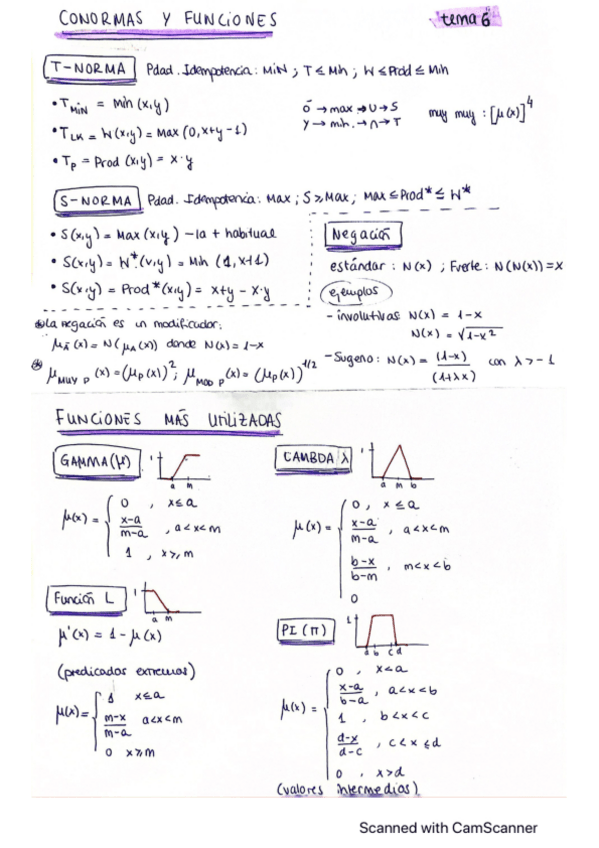 CONORMAS Y FUNCIONES
tema 6
T-NORMA Pdad. Idempotencia: MIN ; T ≤ Min ; W ≤ Prod ≤ Min
• T_MIN = Min (x,y)
• T_LK = W(x,y) = Max (0, x+y-1)
• T_P = Prod (x,y) = x·y
O → max → U → S
Y → min. → ∩ → T
muy muy : [μ(x)]^4
S-NORMA Pdad. Idempotencia: Max ; S ≥ Max ; Max ≤ Prod* ≤ W*
• S(x,y) = Max (x,y) - la + habitual
• S(x,y) = W*(x,y) = Min (1, x+1)
• S(x,y) = Prod*(x,y) = x+y - x·y
Negación
estándar : N(x) ; Fuerte : N(N(x)) = x
ejemplos
- involutivas N(x) = 1-x
N(x) = √1-x²
- Sugeno : N(x) = (1-x) / (1+λx) con λ > -1
La negación es un modificador:
μ_Ā(x) = N(μ_A(x)) donde N(x) = 1-x
μ_MUY P (x) = (μ_P(x))² ; μ_MOD P (x) = (μ_P(x))^1/2
FUNCIONES MÁS UTILIZADAS
GAMMA (μ)
1
a m
μ(x) = { 0 , x ≤ a
x-a / m-a , a < x < m
1 , x ≥ m
Función L
1
a m
μ'(x) = 1 - μ(x)
(predicados extremos)
μ(x) = { 1 x ≤ a
m-x / m-a a < x < m
0 x ≥ m
CAMBDA λ
1
a m b
μ(x) = { 0 , x ≤ a
x-a / m-a , a < x < m
b-x / b-m , m < x < b
0
PI (π)
1
a b c d
μ(x) = { 0 , x < a
x-a / b-a , a < x < b
1 , b < x < c
d-x / d-c , c < x ≤ d
0 , x > d
(valores intermedios)
Scanned with CamScanner